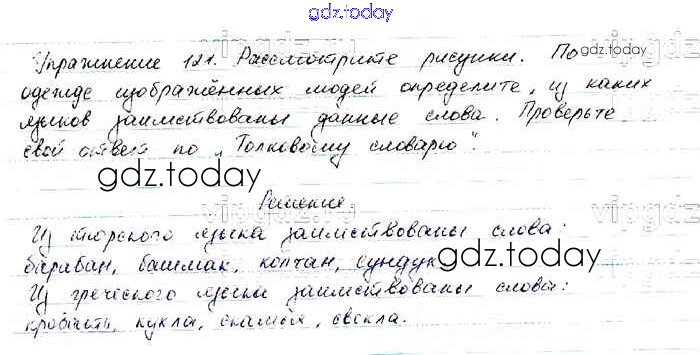 gdz.today
Упражнение 121. Рассмотрите рисунки. По
gdz.today
одежде изображённых людей определите, из каких
языков заимствованы данные слова. Проверьте
свой ответ по „Толковому словарю".
gdz.today
Решение.
Из тюрского языка заимствованы слова:
барабан, башмак, колчан, сундук
gdz.today
Из греческого языка заимствованы слова:
кровать, кукла, скамья, свекла.